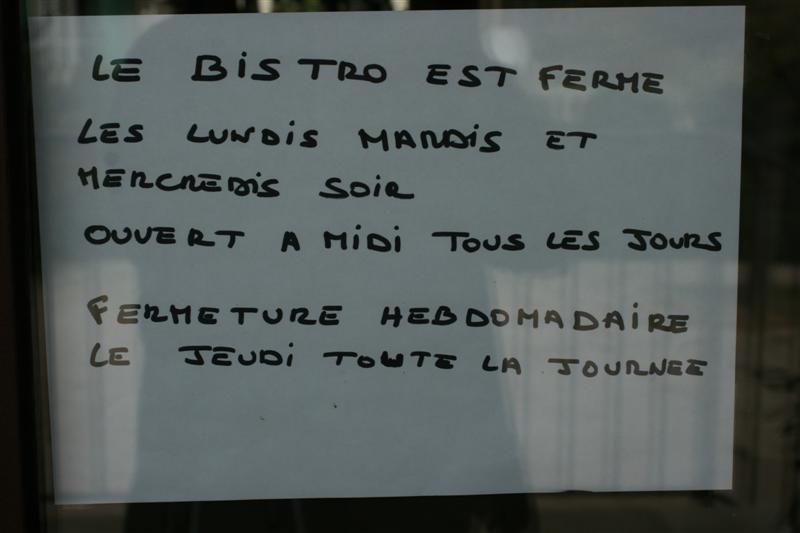 LE BISTRO EST FERME
LES LUNDIS MARDIS ET
MERCREDIS SOIR
OUVERT A MIDI TOUS LES JOURS
FERMETURE HEBDOMADAIRE
LE JEUDI TOUTE LA JOURNEE